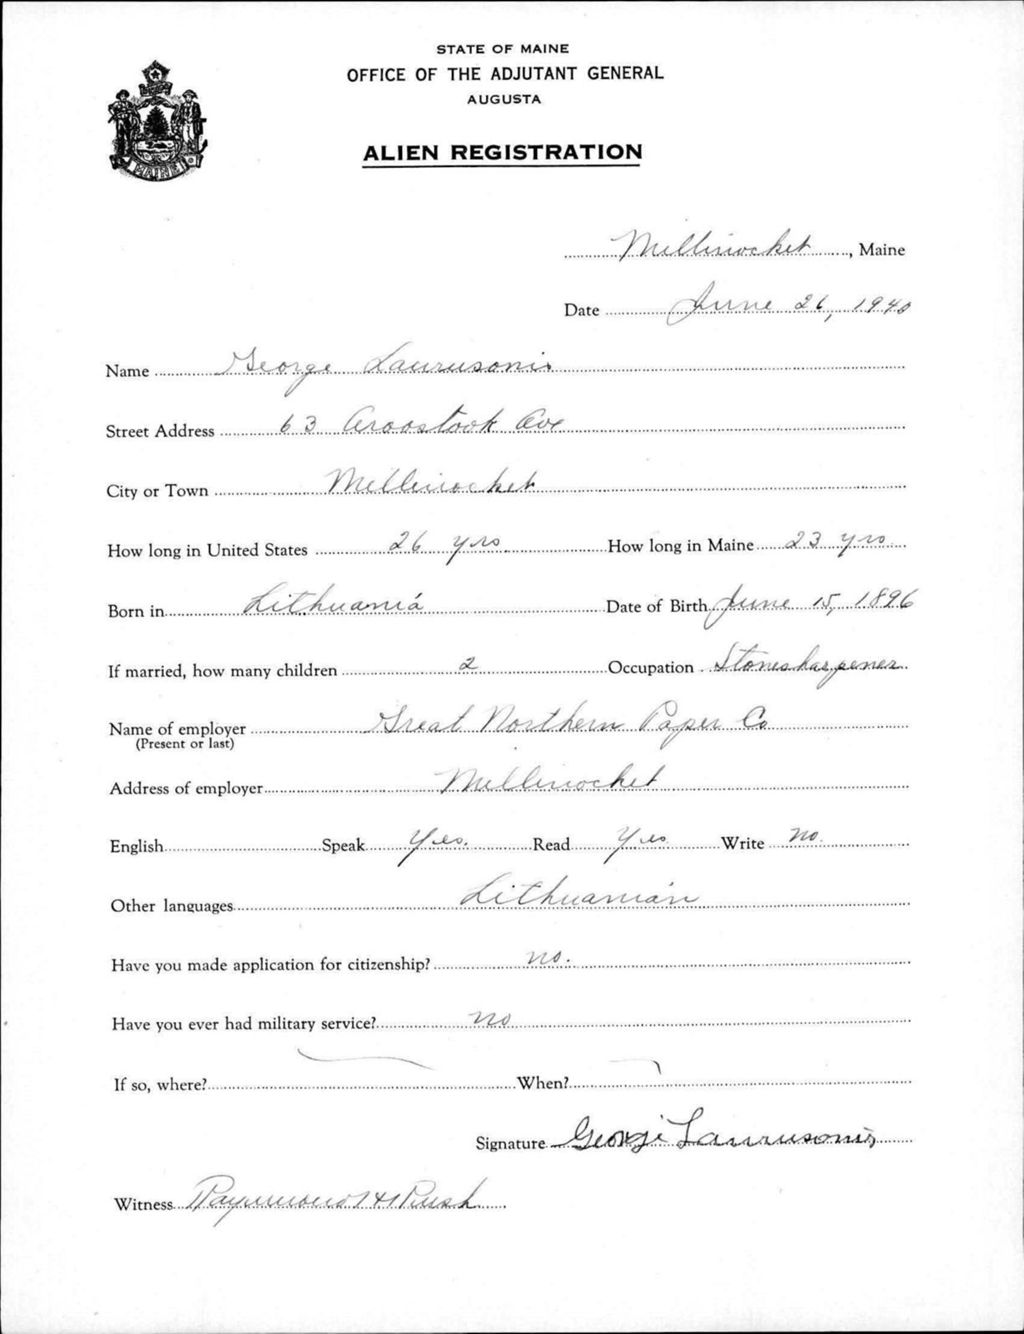 STATE OF MAINE
OFFICE OF THE ADJUTANT GENERAL
AUGUSTA
ALIEN REGISTRATION
MAINE
Millinocket, Maine
Date June 26, 1940
Name George Laurusonis
Street Address 63 Aroostook Ave
City or Town Millinocket
How long in United States 26 yrs How long in Maine 23 yrs
Born in Lithuania Date of Birth June 15, 1896
If married, how many children 2 Occupation Stonesharpener
Name of employer Great Northern Paper Co
(Present or last)
Address of employer Millinocket
English Speak Yes. Read Yes Write no.
Other languages Lithuanian
Have you made application for citizenship? no.
Have you ever had military service? no
If so, where? When?
Signature George Laurusonis
Witness Raymond H Rush